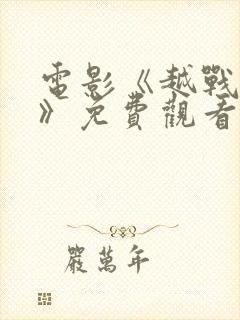 電影《越戰
》免費觀看
嚴萬年